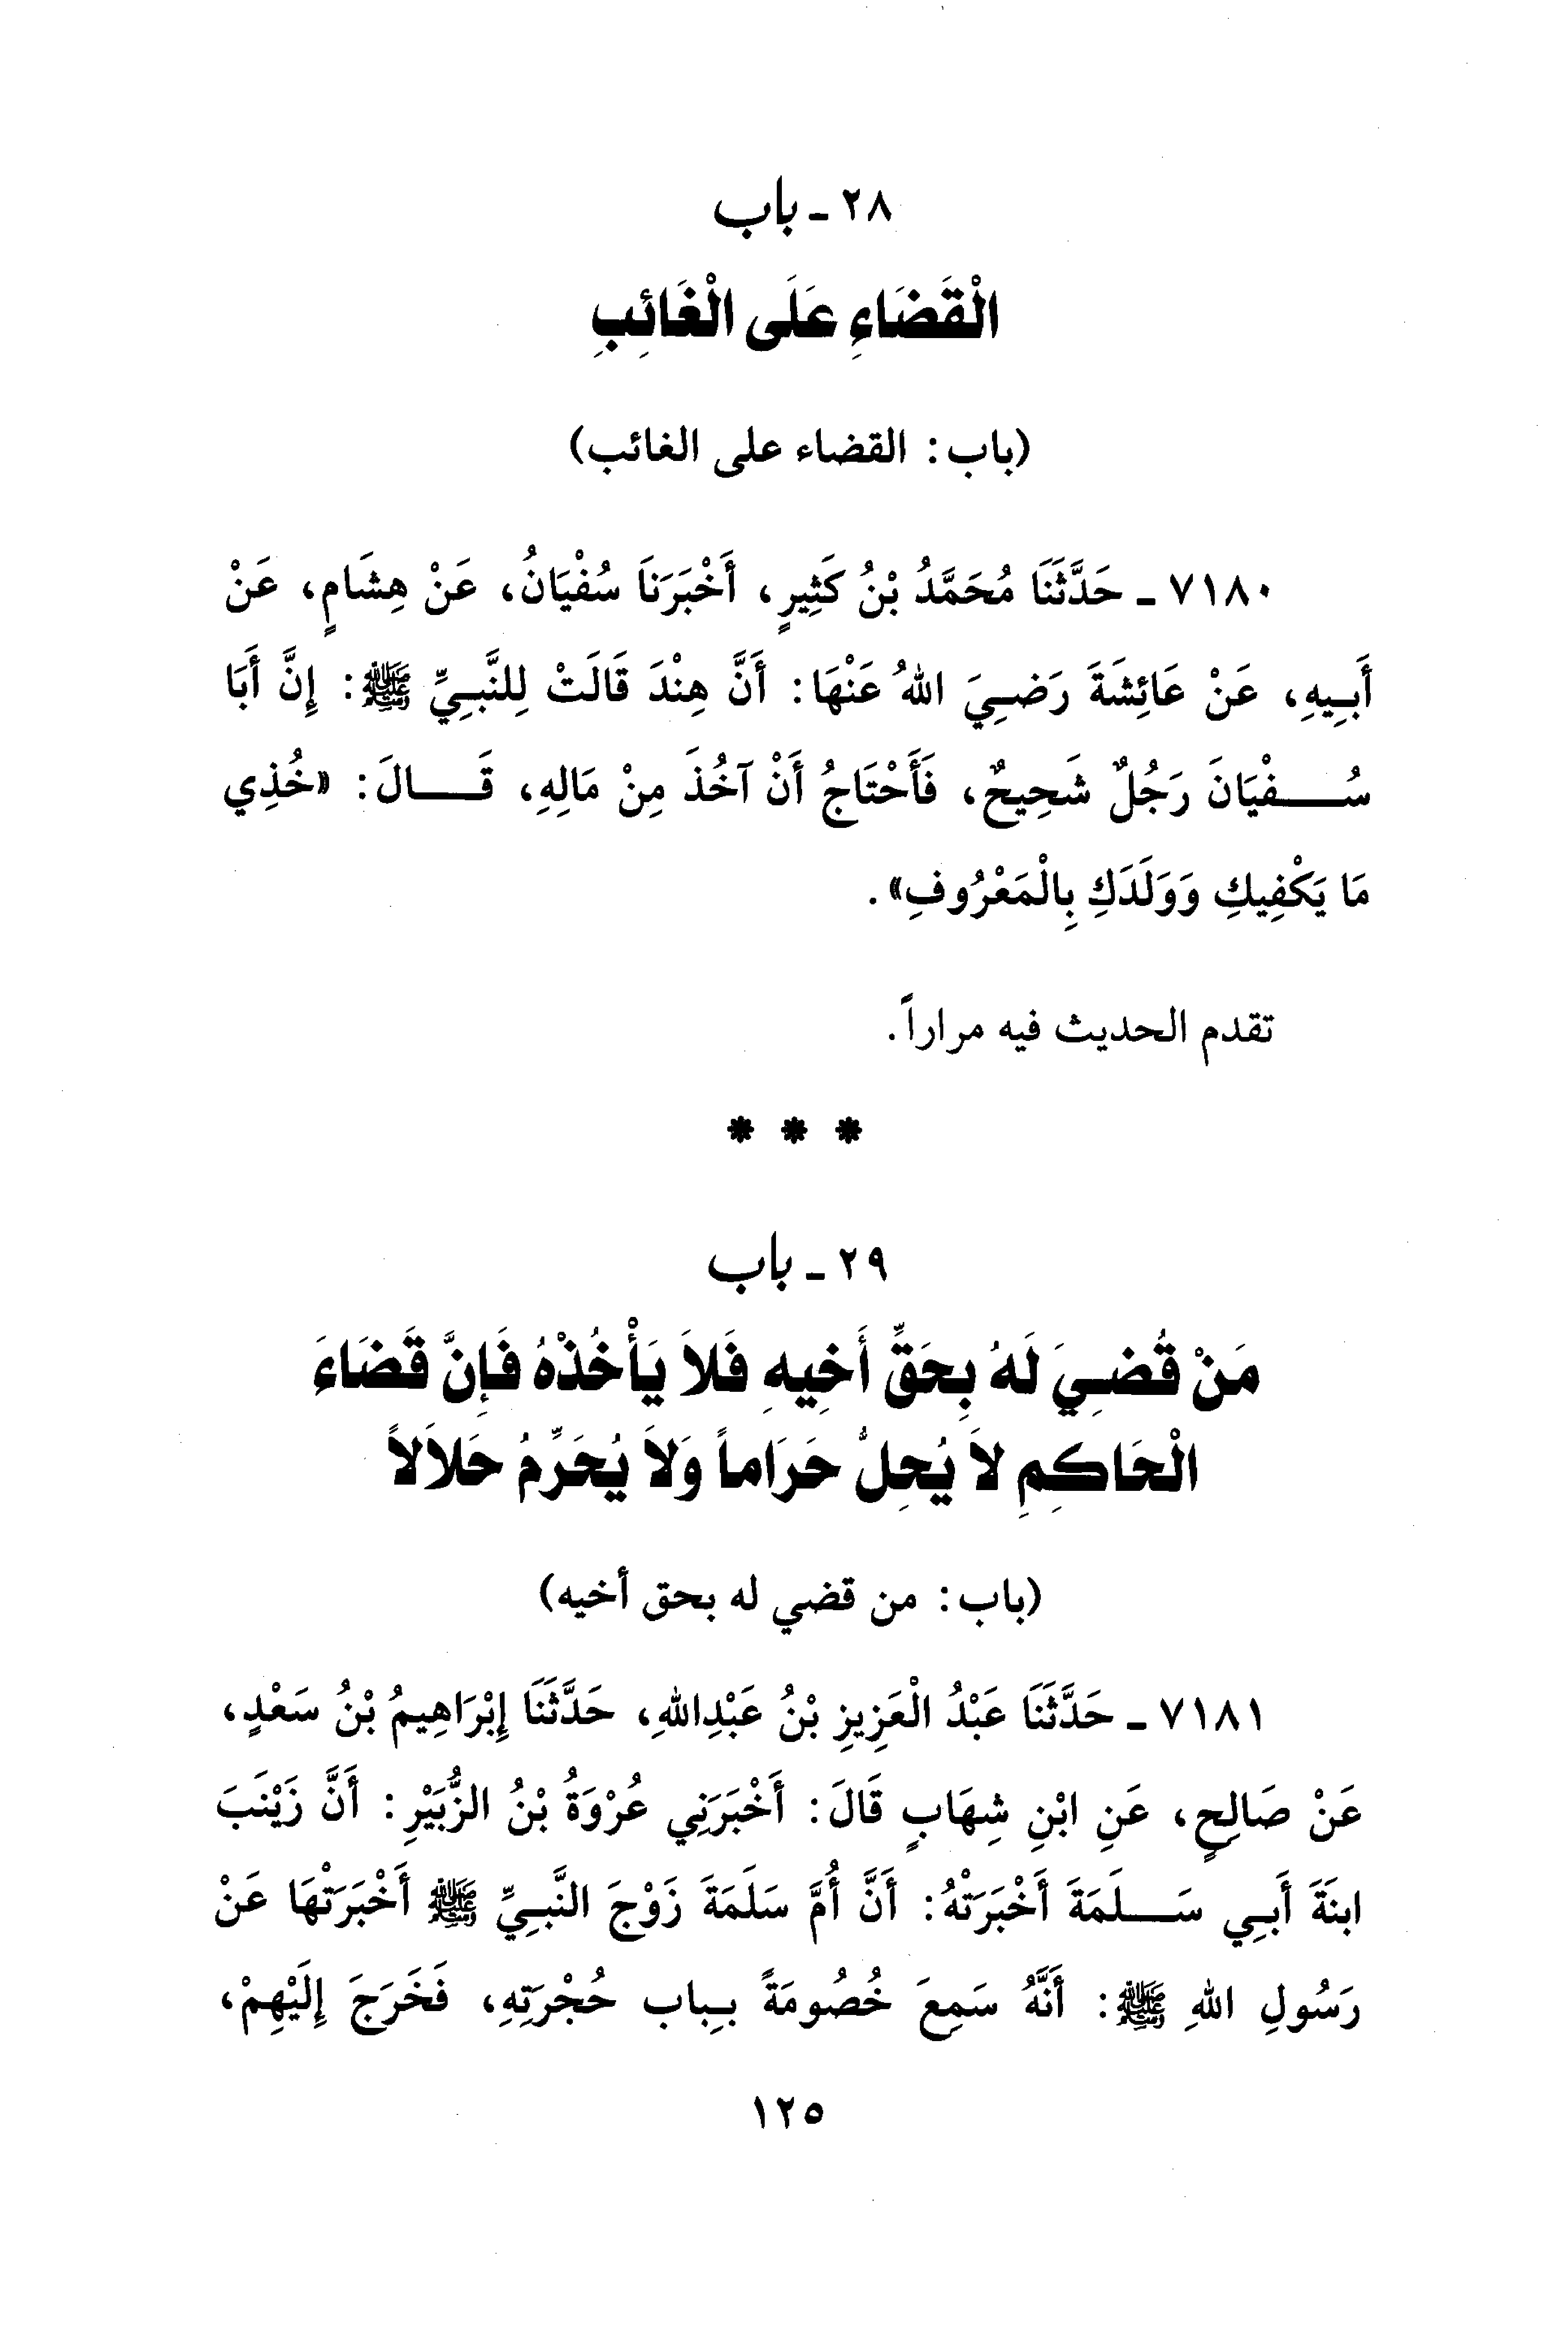 ٢٨ - باب
الْقَضَاءِ عَلَى الْغَائِبِ
(باب: القضاء على الغائب)
٧١٨٠ - حَدَّثَنَا مُحَمَّدُ بْنُ كَثِيرٍ، أَخْبَرَنَا سُفْيَانُ، عَنْ هِشَامٍ، عَنْ
أَبِيهِ، عَنْ عَائِشَةَ رَضِيَ اللهُ عَنْهَا: أَنَّ هِنْدَ قَالَتْ لِلنَّبِيِّ ﷺ: إِنَّ أَبَا
سُفْيَانَ رَجُلٌ شَحِيحٌ، فَأَحْتَاجُ أَنْ آخُذَ مِنْ مَالِهِ، قَالَ: «خُذِي
مَا يَكْفِيكِ وَوَلَدَكِ بِالْمَعْرُوفِ».
تقدم الحديث فيه مراراً.
* * *
٢٩ - باب
مَنْ قُضِيَ لَهُ بِحَقِّ أَخِيهِ فَلاَ يَأْخُذْهُ فَإِنَّ قَضَاءَ
الْحَاكِمِ لاَ يُحِلُّ حَرَاماً وَلاَ يُحَرِّمُ حَلاَلاً
(باب: من قضي له بحق أخيه)
٧١٨١ - حَدَّثَنَا عَبْدُ الْعَزِيزِ بْنُ عَبْدِاللهِ، حَدَّثَنَا إِبْرَاهِيمُ بْنُ سَعْدٍ،
عَنْ صَالِحٍ، عَنِ ابْنِ شِهَابٍ قَالَ: أَخْبَرَنِي عُرْوَةُ بْنُ الزُّبَيْرِ: أَنَّ زَيْنَبَ
ابنَةَ أَبِي سَلَمَةَ أَخْبَرَتْهُ: أَنَّ أُمَّ سَلَمَةَ زَوْجَ النَّبِيِّ ﷺ أَخْبَرَتْهَا عَنْ
رَسُولِ اللهِ ﷺ: أَنَّهُ سَمِعَ خُصُومَةً بِبَاب حُجْرَتِهِ، فَخَرَجَ إِلَيْهِمْ،
١٢٥